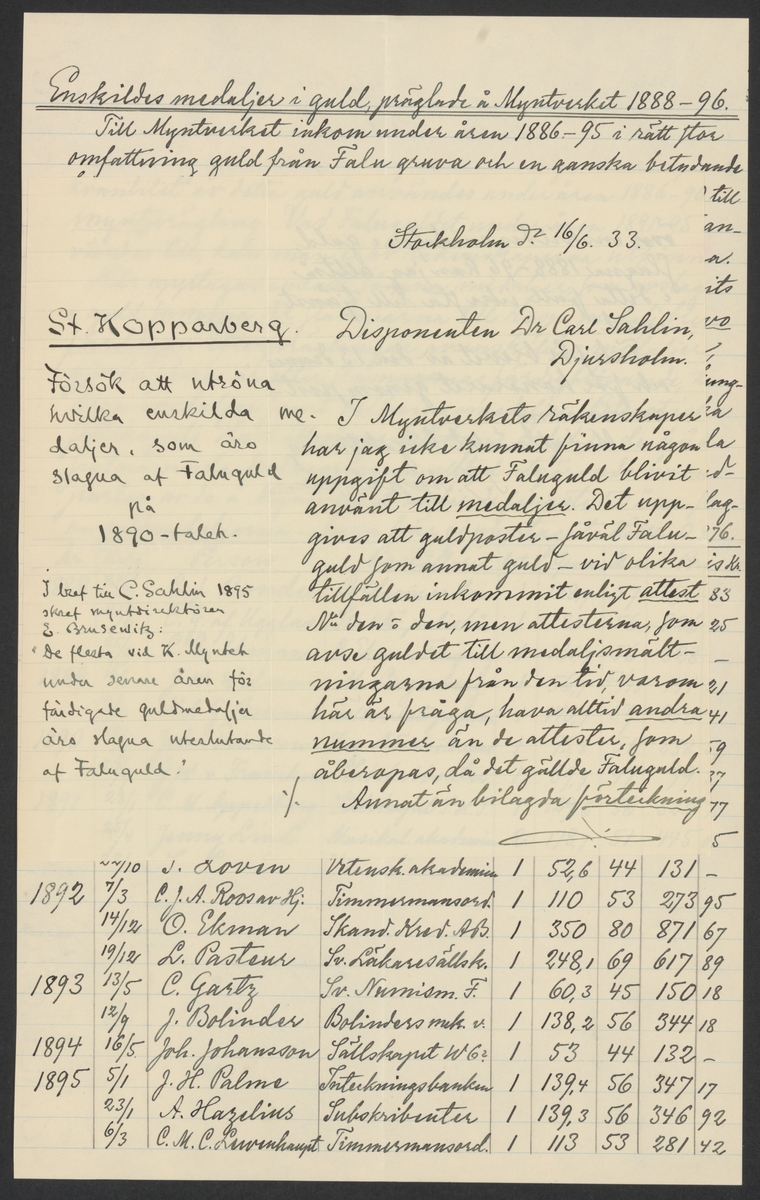 Enskildes medaljer i guld, präglade å Myntverket 1888–96.
Till Myntverket inkom under åren 1886–95 i rätt stor
omfattning guld från Falu gruva och en ganska betydande
till
an-
a.
its
vo
ung-
ka
la
d-
lag-
76.
is Kr.
83
25
–
21
41
59
37
77
5
Stockholm d. 16/6. 33.
St. Kopparberg.
Försök att utröna
hvilka enskilda me-
daljer, som äro
slagna af Faluguld
på
1890-talet.
I bref till C. Sahlin 1895
skref myntdirektören
E. Brusewitz:
"De flesta vid K. Myntet
under senare åren för
färdigade guldmedaljer
äro slagna uteslutande
af Faluguld."
Disponenten Dr Carl Sahlin,
Djursholm.
I Myntverkets räkenskaper
har jag icke kunnat finna någon
uppgift om att Faluguld blivit
använt till medaljer. Det upp-
gives att guldposter – såväl Falu-
guld som annat guld – vid olika
tillfällen inkommit enligt attest
No den o den, men attesterna, som
avse guldet till medaljsmält-
ningarna från den tid, varom
här är fråga, hava alltid andra
nummer än de attester, som
åberopas, då det gällde Faluguld.
Annat än bilagda förteckning
./.
/10 S. Lovén Vetensk. akademien 1 52,6 44 131 –
1892 7/3 C. J. A. Roos av Hj. Timmermansord. 1 110 53 273 95
14/12 O. Ekman Skand. Kred. A.B. 1 350 80 871 67
19/12 L. Pasteur Sv. Läkaresällsk. 1 248,1 69 617 89
1893 13/5 C. Gartz Sv. Numism. F. 1 60,3 45 150 18
12/9 J. Bolinder Bolinders mek. v. 1 138,2 56 344 18
1894 16/5 Joh. Johansson Sällskapet W 6 1 53 44 132 –
1895 5/1 J. H. Palme Inteckningsbanken 1 139,4 56 347 17
23/1 A. Hazelius Subskribenter 1 139,3 56 346 92
6/3 C. M. C. Lewenhaupt Timmermansord. 1 113 53 281 42